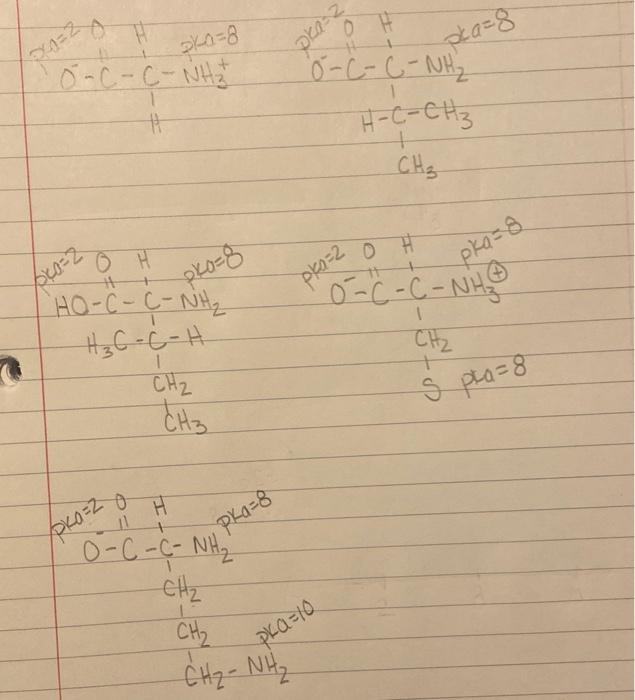 pka=2 O H pka=8
O⁻-C-C-NH₃⁺
H
pka=2 O H pka=8
O⁻-C-C-NH₂
H-C-CH₃
CH₃
pka=2 O H pka=8
HO-C-C-NH₂
H₃C-C-H
CH₂
CH₃
pka=2 O H pka=8
O⁻-C-C-NH₃⊕
CH₂
S pka=8
pka=2 O H pka=8
O⁻-C-C-NH₂
CH₂
CH₂ pka=10
CH₂-NH₂